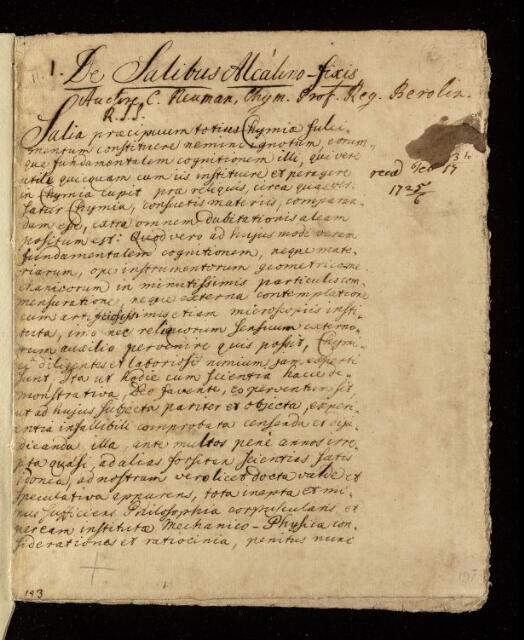 1. De Salibus Alcalino-fixis
Auctore, C. Neuman, Chym. Prof. Reg. Berolin.
R.S.S.
Salia præcipuum totius Chymiæ fulci-
mentum constituere nemini ignotum, eorum-
que fundamentalem cognitionem illi, qui vere
utile quicquam cum iis instituere et peragere
in Chymia cupit præ reliquis, circa quæ ver-
satur Chymia, consuetis materiis, comparan-
dam esse, extra omnem dubitationis aleam
positum est: Quod vero ad hujus modi veram
fundamentalem cognitionem, neque mate-
riarum, ope instrumentorum geometrico me-
chanicorum in minutissimis particulis com-
mensuratione, neque externa contemplatione
cum artificiosissimis etiam microscopiis insti-
tuta, imo nec reliquorum sensuum externo-
rum auxilio pervenire quis possit, Chymi-
ci diligentes et laboriosi nimium jam experti
sunt, Ita ut hodie cum scientia hacce de-
monstrativa, Deo favente, eo perventum sit,
ut ad hujus subjecta pariter et objecta, experi-
entia infallibili comprobata censenda et diju-
dicanda illa, ante multos pene annos irre-
pta quasi, ad alias forsiten scientias satis
idonea, ad nostram vero licet docta valde et
speculativa apparens, tota inepta et mi-
nus sufficiens Philosophia corpuscularis et
per eam instituta Mechanico-Physica con-
siderationes et ratiocinia, penitus nunc
read
17
1725/6
193
197